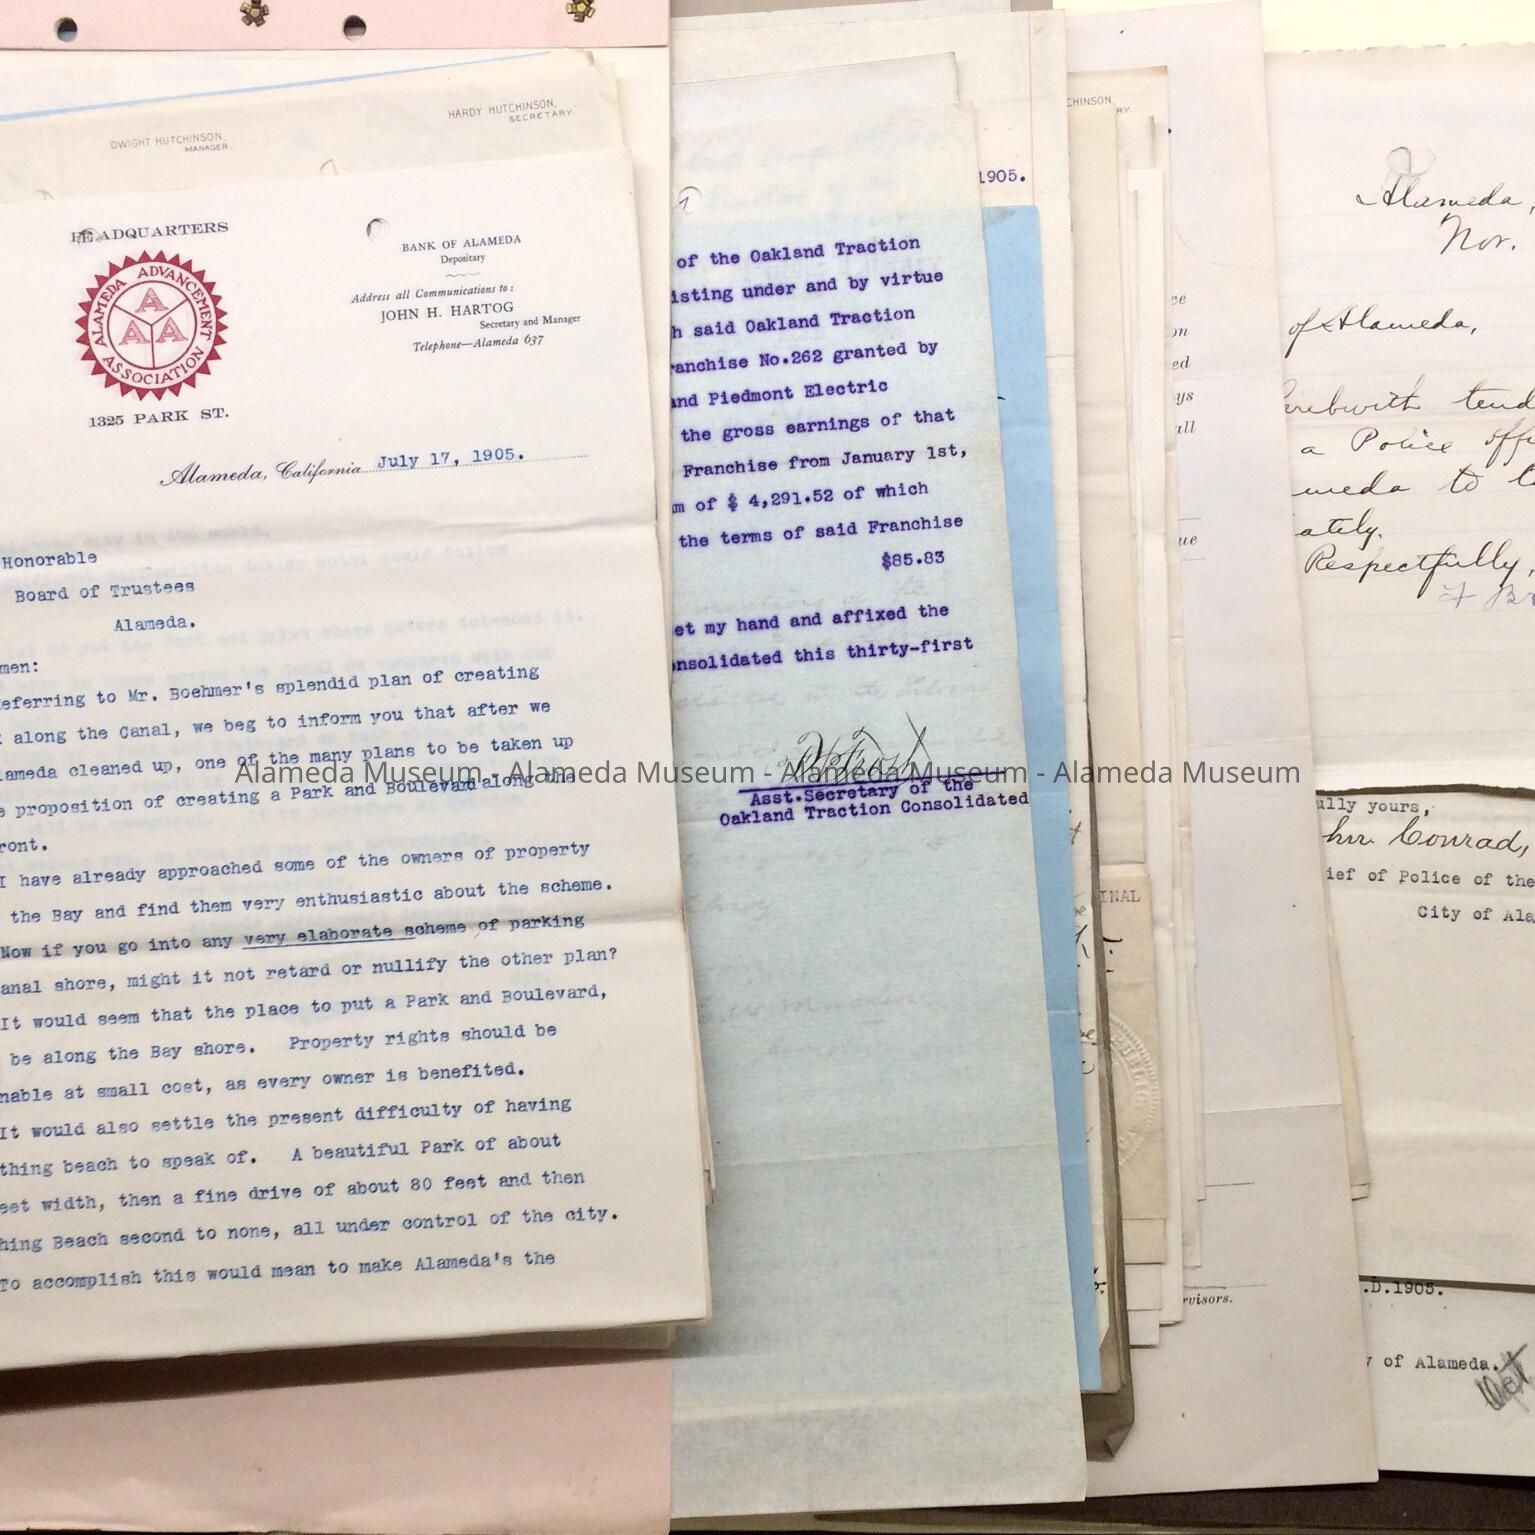 HARDY HUTCHINSON,
SECRETARY.
DWIGHT HUTCHINSON,
MANAGER
HEADQUARTERS
ALAMEDA ADVANCEMENT ASSOCIATION
A
A A
1325 PARK ST.
BANK OF ALAMEDA
Depositary
Address all Communications to:
JOHN H. HARTOG
Secretary and Manager
Telephone—Alameda 637
Alameda, California July 17, 1905.
Honorable
Board of Trustees
Alameda.
men:
eferring to Mr. Boehmer's splendid plan of creating
along the Canal, we beg to inform you that after we
lameda cleaned up, one of the many plans to be taken up
e proposition of creating a Park and Boulevard along the
ront.
I have already approached some of the owners of property
the Bay and find them very enthusiastic about the scheme.
Now if you go into any very elaborate scheme of parking
anal shore, might it not retard or nullify the other plan?
It would seem that the place to put a Park and Boulevard,
be along the Bay shore. Property rights should be
nable at small cost, as every owner is benefited.
It would also settle the present difficulty of having
thing beach to speak of. A beautiful Park of about
eet width, then a fine drive of about 80 feet and then
hing Beach second to none, all under control of the city.
To accomplish this would mean to make Alameda's the
1905.
of the Oakland Traction
isting under and by virtue
h said Oakland Traction
ranchise No.262 granted by
and Piedmont Electric
the gross earnings of that
Franchise from January 1st,
um of $ 4,291.52 of which
the terms of said Franchise
$85.83
et my hand and affixed the
onsolidated this thirty-first
Asst.Secretary of the
Oakland Traction Consolidated
CHINSON,
RY.
INAL
PUBLIC
ce
on
ed
ys
all
ue
rvisors.
Alameda,
Nov.
of Alameda,
erebwith tend
a Police offi
meda to ta
ately.
Respectfully,
ully yours,
hn Conrad,
ief of Police of the
City of Ala
.D.1905.
y of Alameda.
Alameda Museum - Alameda Museum - Alameda Museum - Alameda Museum